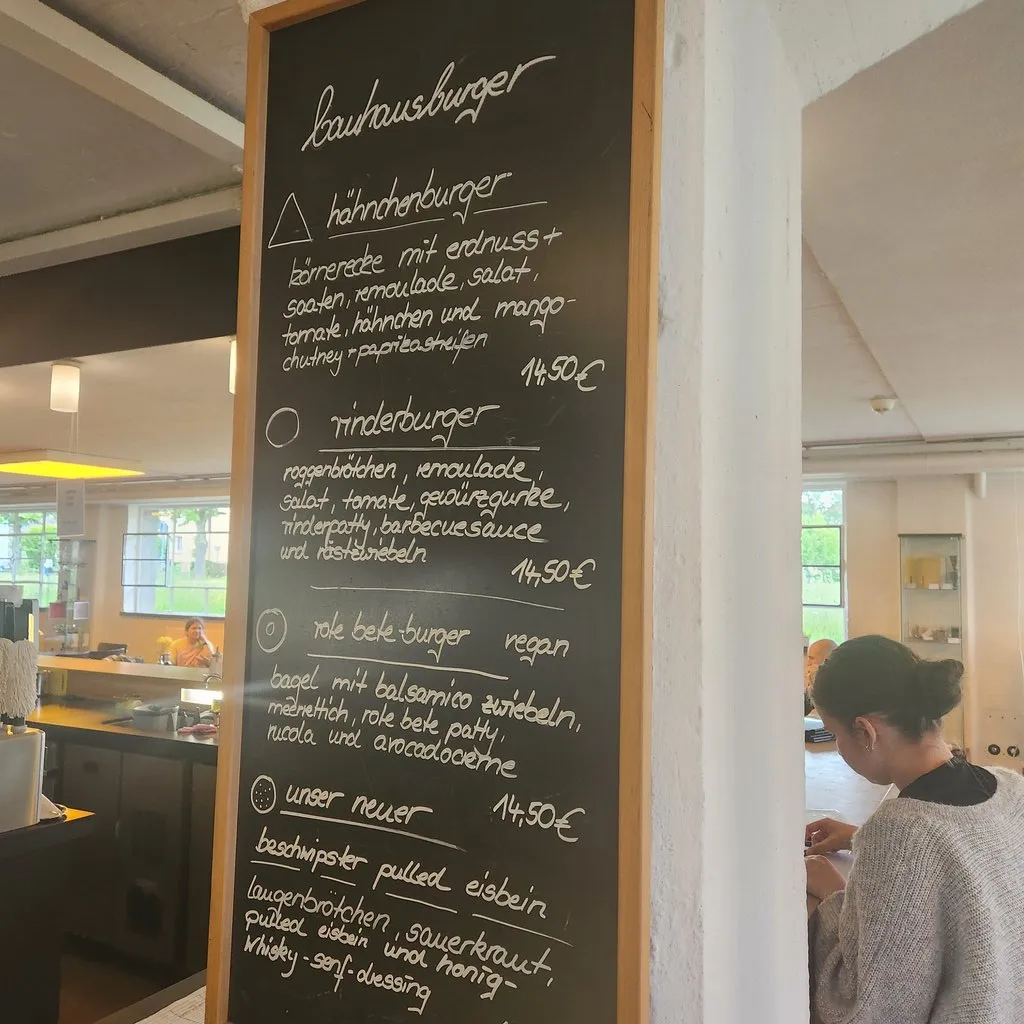 bauhausburger
hähnchenburger
körnerecke mit erdnuss+
saaten, remoulade, salat,
tomate, hähnchen und mango-
chutney+paprikastreifen
14,50€
rinderburger
roggenbrötchen, remoulade,
salat, tomate, gewürzgurke,
rinderpatty, barbecuesauce
und röstzwiebeln
14,50€
rote bete-burger vegan
bagel mit balsamico zwiebeln,
meerrettich, rote bete patty,
rucola und avocadocreme
14,50€
unser neuer
beschwipster pulled eisbein
laugenbrötchen, sauerkraut,
pulled eisbein und honig-
whisky-senf-dressing